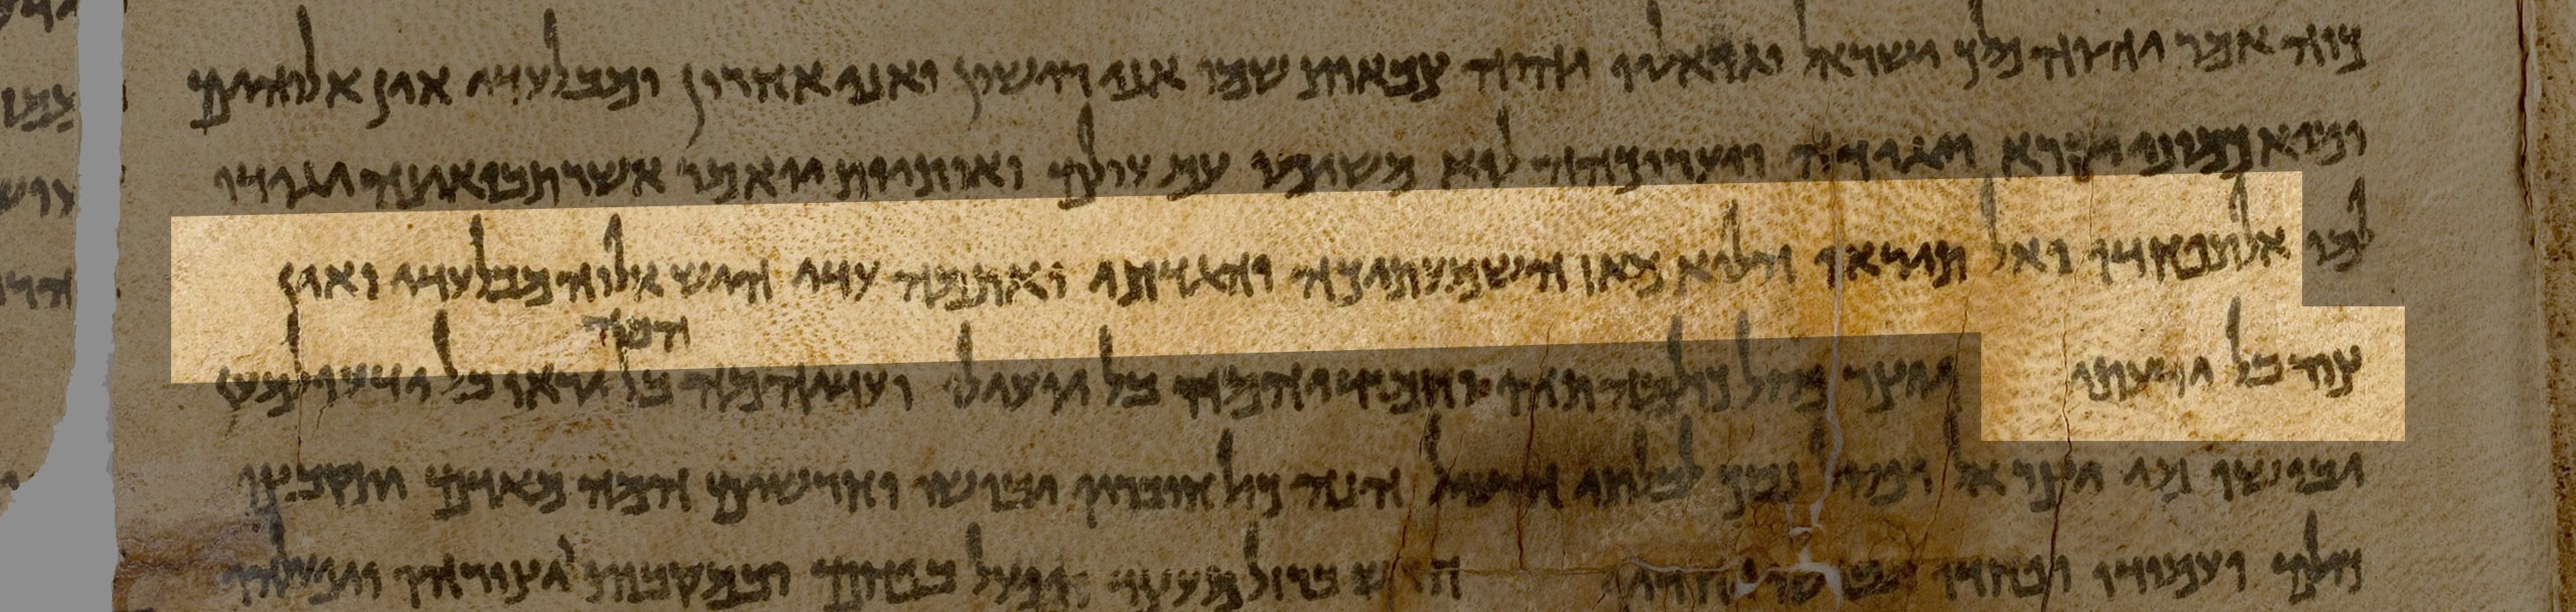 כוה אמר יהוה מלך ישראל וגואלו יהוה צבאות שמו אני רישון ואני אחרון ומבלעדי אין אלוהים
ומיא כמוני יקרא ויגידה ויעריכהה לוא משומי עם עולם ואותיות יואמר אשר תבואינה יגידו
למו אל תפחדו ואל תיראו הלוא מאז השמעתיכה והגדתי ואתמה עדי היש אלוה מבלעדי ואין
המה
צור בל ידעתי יוצר פסל כולם תוהו וחמודיהמה בל יועילו ועדיהמה בל יראו בל ידעו למען
יבושו מי יצר אל ופסל נסך לבלתי הועיל הנה כול חובריו יבושו וחרשים המה מאדם יתקבצו
כולם ויעמודו ופחדו יחדיו חרש ברזל מעצד ויפעל בפחם ובמקבות יצורהו ויפעלהו